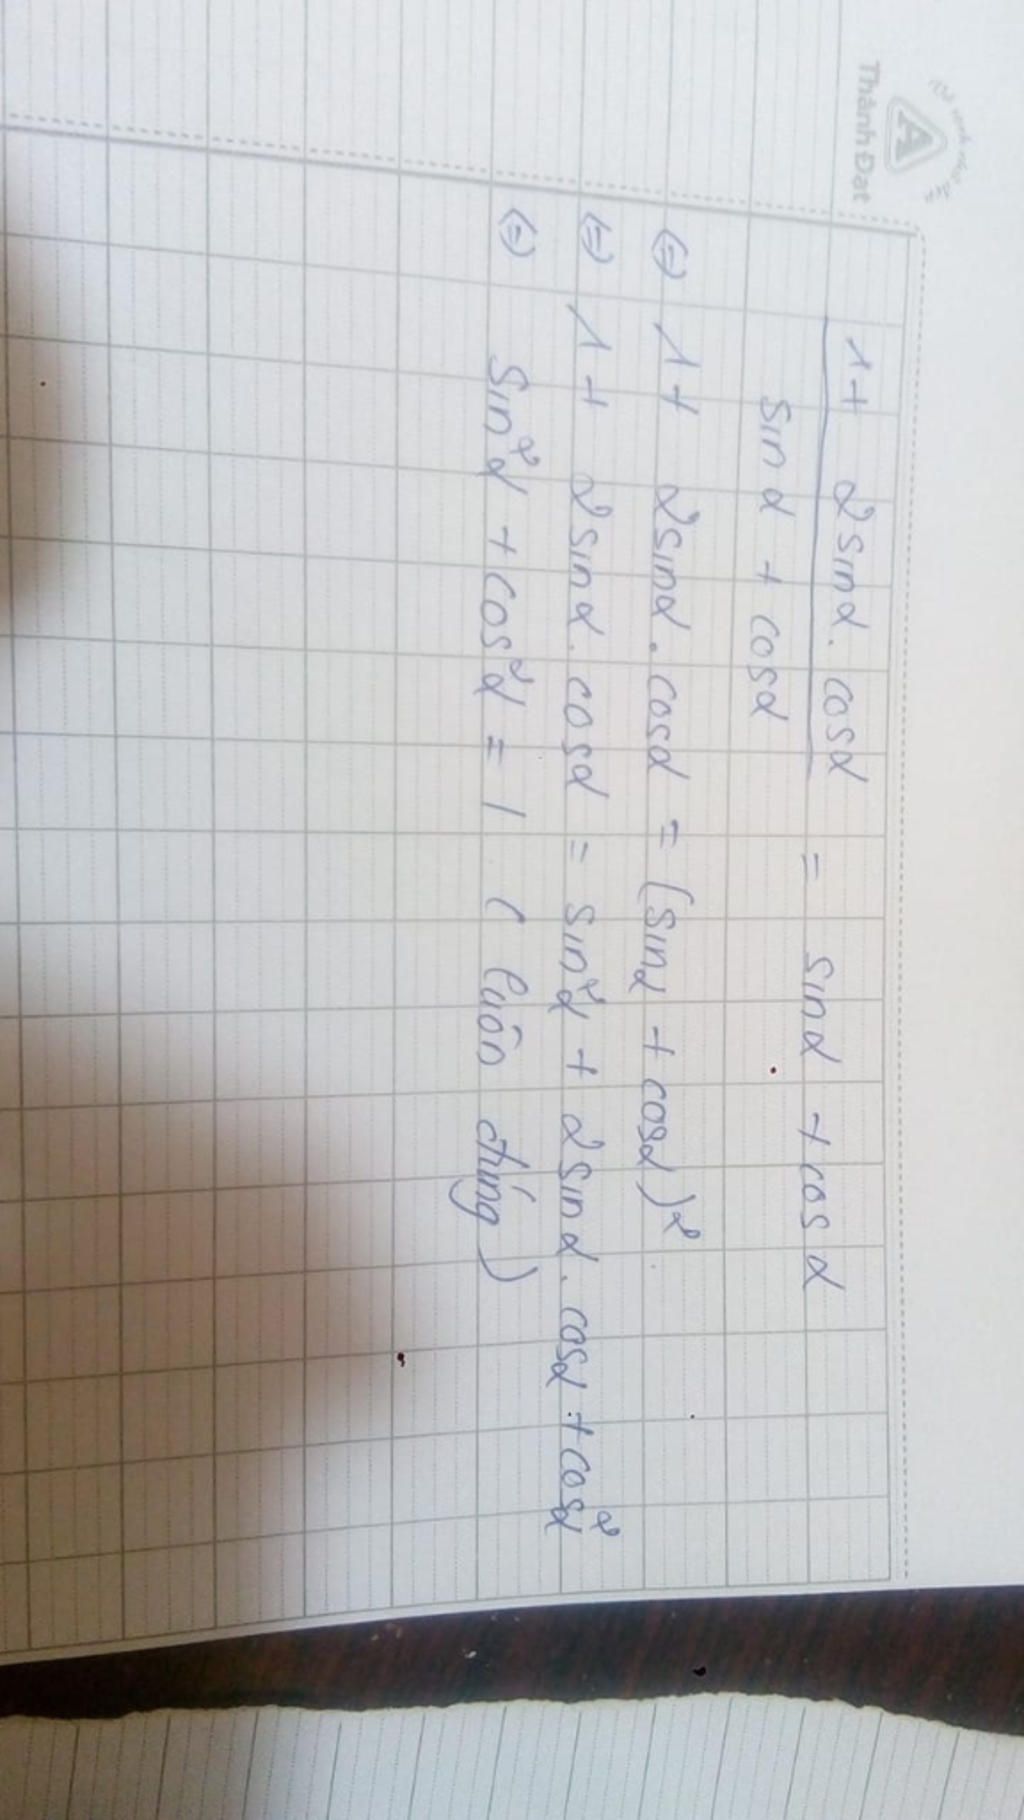 Thành Đạt
1 + 2 sin α . cos α
sin α + cos α
= sin α + cos α
(=) 1 + 2 sin α . cos α = (sin α + cos α)²
(=) 1 + 2 sin α . cos α = sin² α + 2 sin α . cos α + cos² α
(=) sin² α + cos² α = 1 ( luôn đúng )